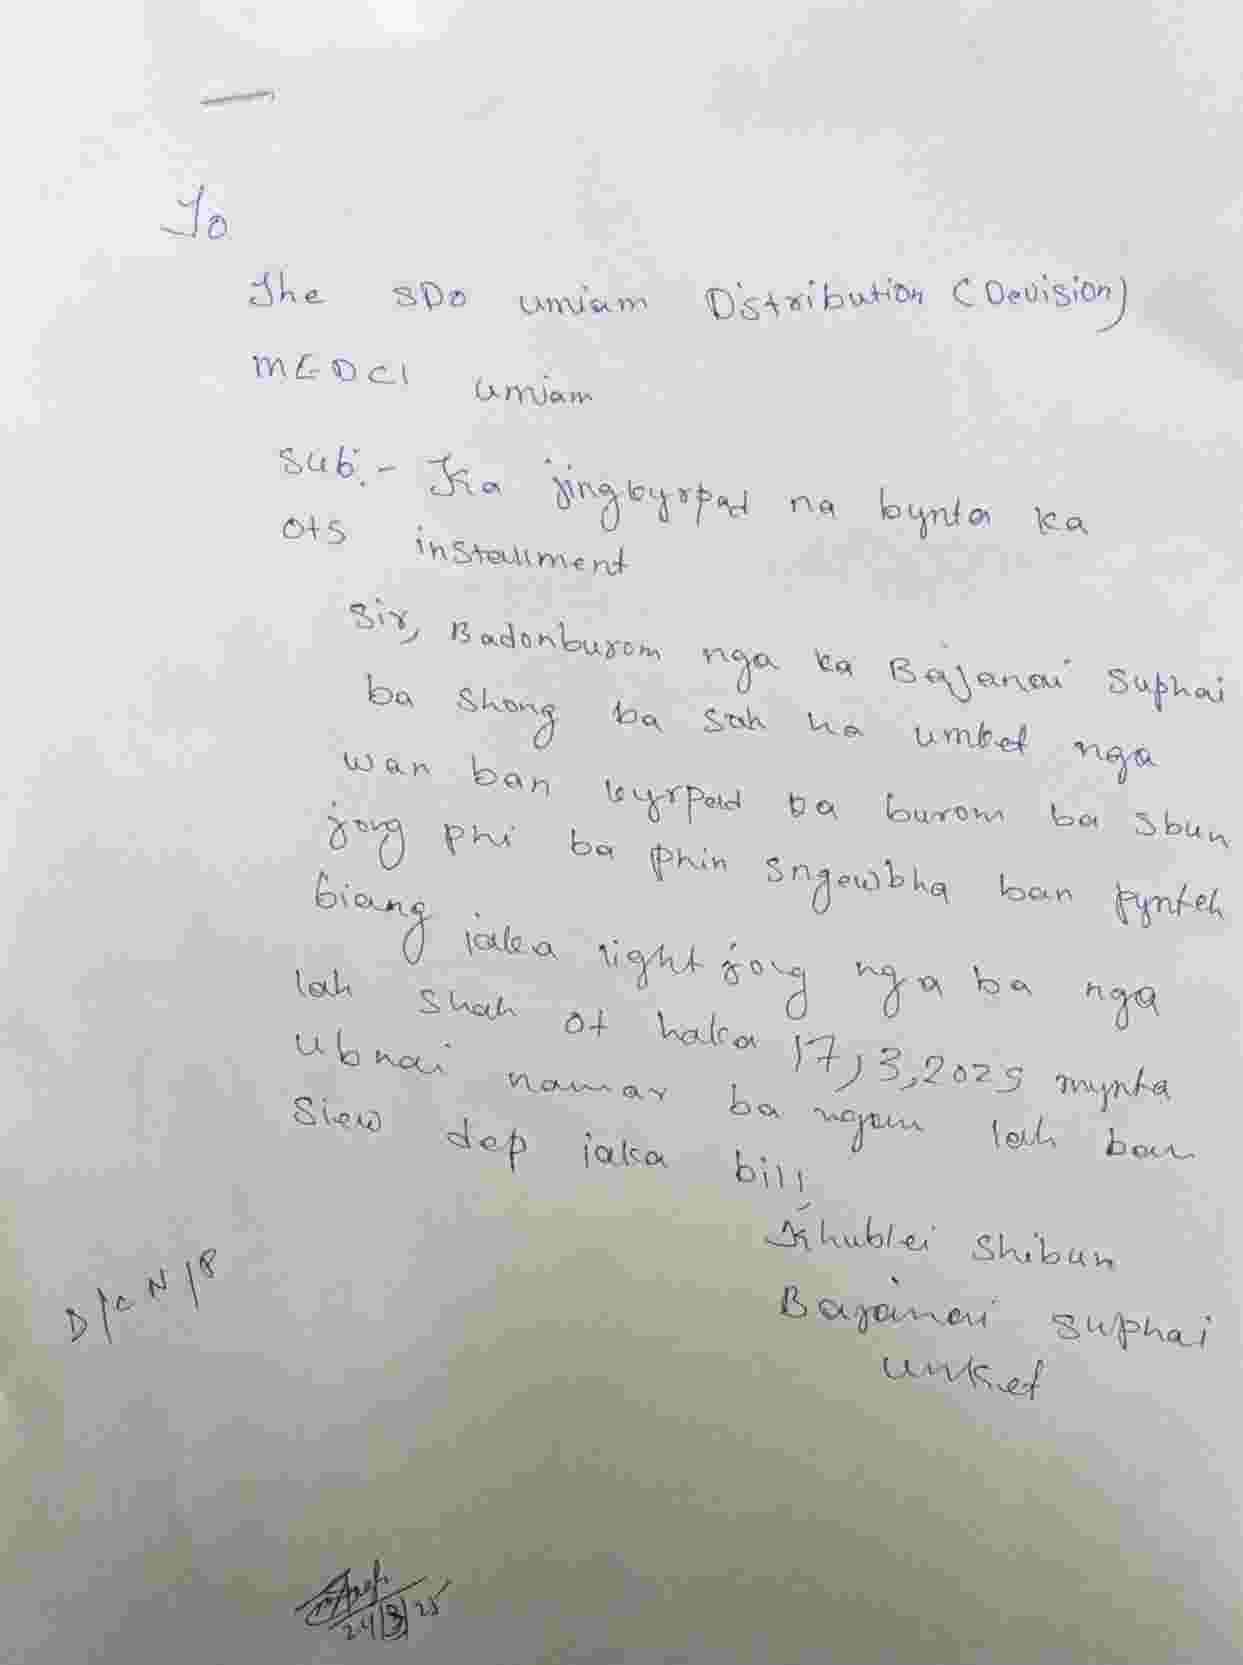 To
The SDO umiam Distribution (Devision)
MEDCl umiam
Sub:- Ka jingkyrpad na bynta ka
OTS installment
Sir, Badonburom nga ka Bajanai Suphai
ba shong ba sah ha umket nga
wan ban kyrpad ba burom ba sbun
jong phi ba phin sngewbha ban pynteh
biang iaka right jong nga ba nga
lah shah ot haka 17,3,2025 mynta
U bnai namar ba ngam lah ban
Siew dep iaka bill
Khublei Shibun
Bajanai Suphai
umket
D/C N/P
24/3/25